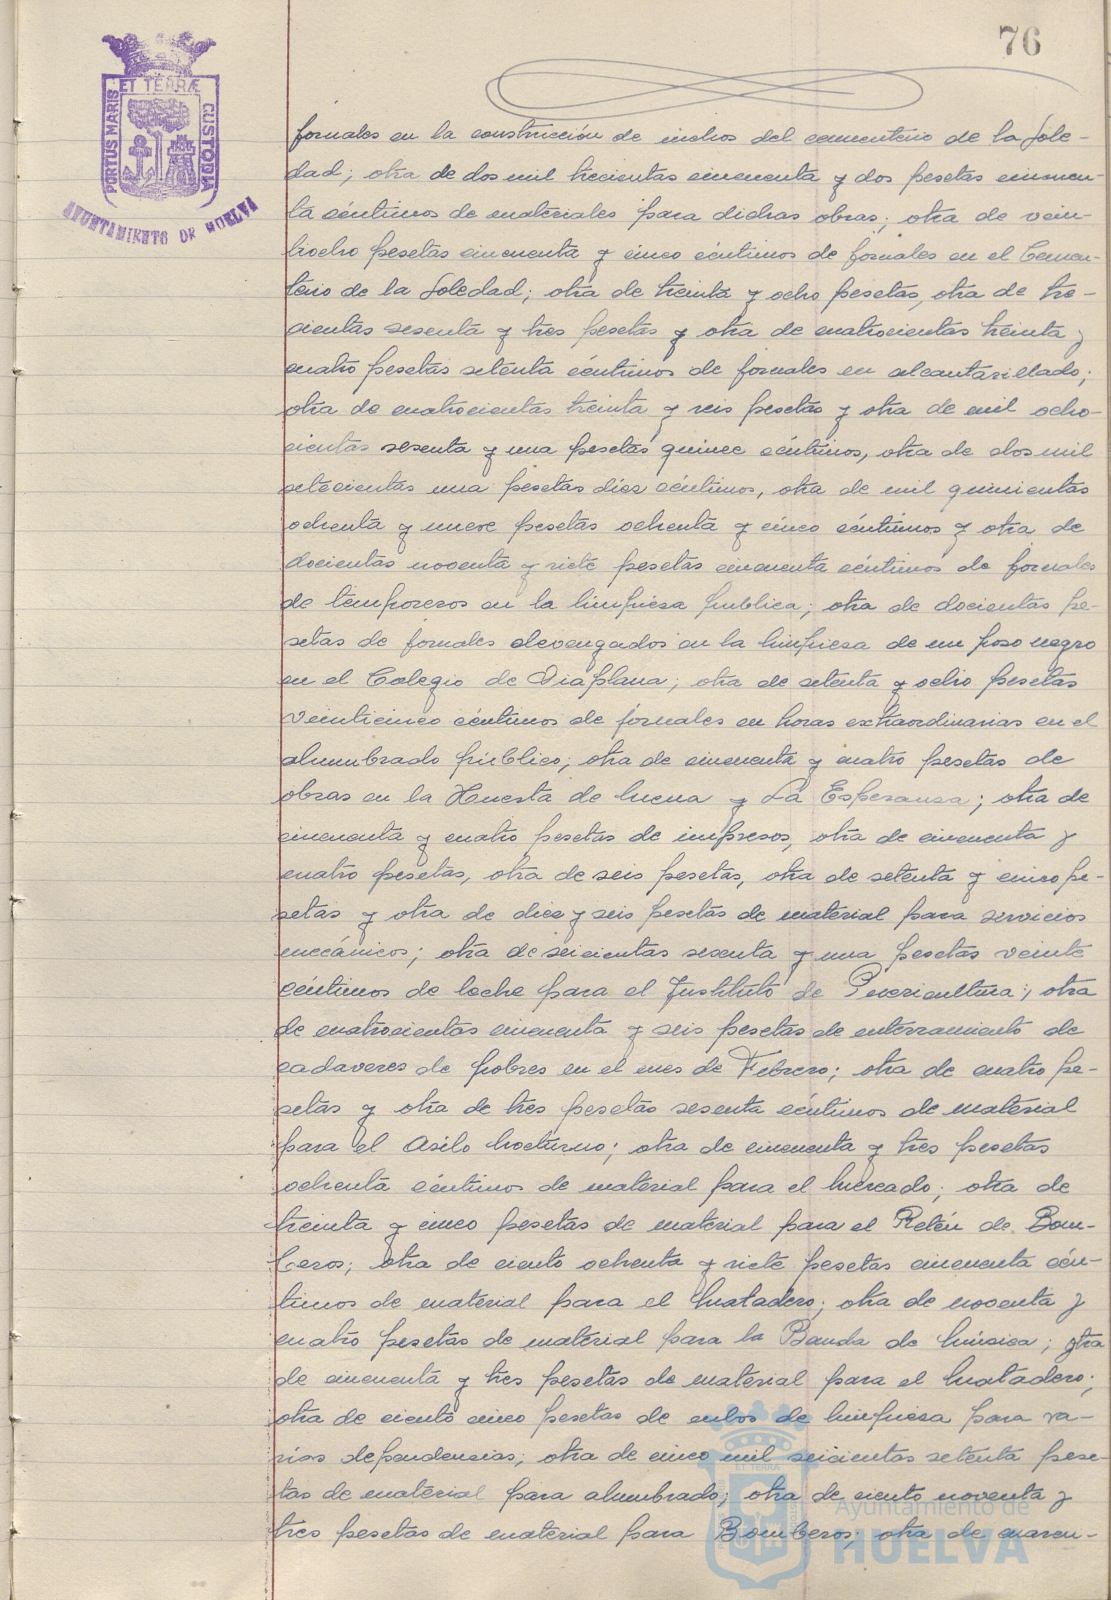 76
PORTUS MARIS ET TERRÆ CUSTODIA
AYUNTAMIENTO DE HUELVA
jornales en la construcción de nichos del cementerio de la Sole-
dad; otra de dos mil trecientas cincuenta y dos pesetas cincuen-
ta céntimos de materiales para dichas obras; otra de vein-
tiocho pesetas cincuenta y cinco céntimos de jornales en el Cemen-
terio de la Soledad; otra de treinta y ocho pesetas, otra de tre-
cientas sesenta y tres pesetas y otra de cuatrocientas treinta y
cuatro pesetas setenta céntimos de jornales en alcantarillado;
otra de cuatrocientas treinta y seis pesetas y otra de mil ocho-
cientas sesenta y una pesetas quince céntimos, otra de dos mil
setecientas una pesetas diez céntimos, otra de mil quinientas
ochenta y nueve pesetas ochenta y cinco céntimos y otra de
docientas noventa y siete pesetas cincuenta céntimos de jornales
de temporeros en la limpiesa publica; otra de docientas pe-
setas de jornales devengados en la limpiesa de un poso negro
en el Colegio de Viaplana; otra de setenta y ocho pesetas
veinticinco céntimos de jornales en horas extraordinarias en el
alumbrado público; otra de cincuenta y cuatro pesetas de
obras en la Huerta de Mena y La Esperansa; otra de
cincuenta y cuatro pesetas de impresos, otra de cincuenta y
cuatro pesetas, otra de seis pesetas, otra de setenta y cinco pe-
setas y otra de diez y seis pesetas de material para servicios
mecánicos; otra de seicientas sesenta y una pesetas veinte
céntimos de leche para el Instituto de Puericultura; otra
de cuatrocientas cincuenta y seis pesetas de enterramiento de
cadaveres de pobres en el mes de Febrero; otra de cuatro pe-
setas y otra de tres pesetas sesenta céntimos de material
para el Asilo Nocturno; otra de cincuenta y tres pesetas
ochenta céntimos de material para el Mercado; otra de
treinta y cinco pesetas de material para el Retén de Bom-
beros; otra de ciento ochenta y siete pesetas cincuenta cén-
timos de material para el Matadero; otra de noventa y
cuatro pesetas de material para la Banda de Música; otra
de cincuenta y tres pesetas de material para el Matadero;
otra de ciento cinco pesetas de cubos de limpiesa para va-
rias dependensias; otra de cinco mil seicientas setenta pese-
tas de material para alumbrado; otra de ciento noventa y
tres pesetas de material para Bomberos; otra de cuaren-
Ayuntamiento de
HUELVA